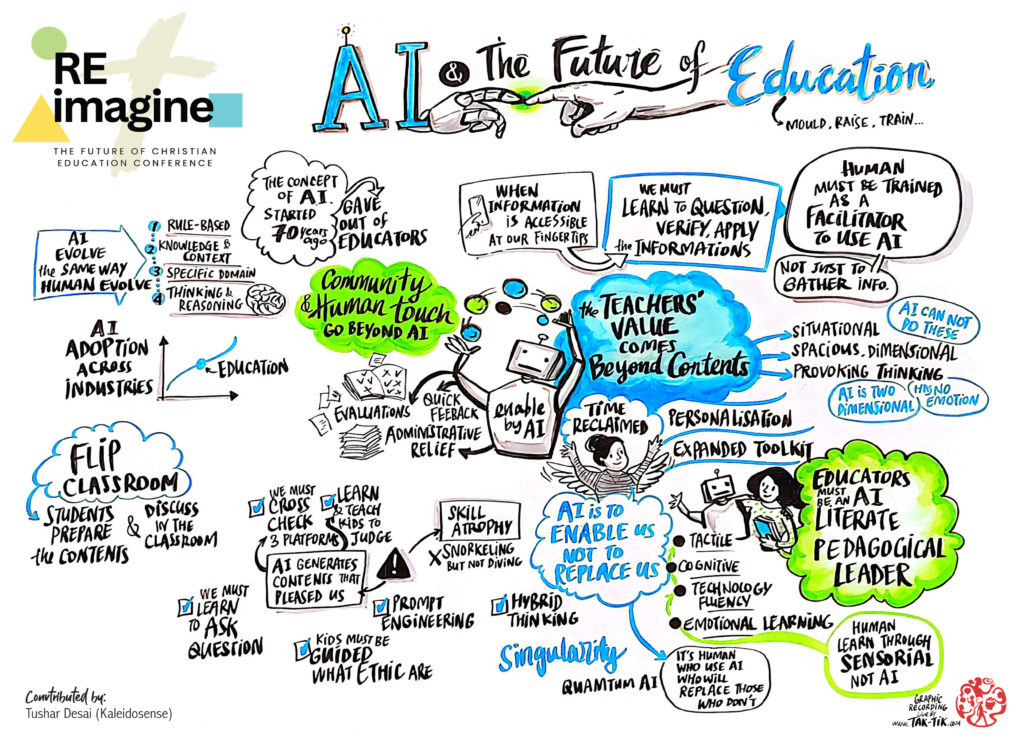 RE
imagine
THE FUTURE OF CHRISTIAN
EDUCATION CONFERENCE
AI & The Future of Education
MOULD, RAISE, TRAIN...
AI
EVOLVE
the SAME WAY
HUMAN EVOLVE
1 RULE-BASED
2 KNOWLEDGE &
CONTEXT
3 SPECIFIC DOMAIN
4 THINKING &
REASONING
THE CONCEPT
OF AI
STARTED
70 years
ago
GAVE
OUT of
EDUCATORS
WHEN
INFORMATION
IS ACCESSIBLE
AT OUR FINGERTIPS
WE MUST
LEARN TO QUESTION,
VERIFY, APPLY
the INFORMATIONS
HUMAN
MUST BE TRAINED
AS A
FACILITATOR
TO USE AI
NOT JUST TO
GATHER INFO.
AI
ADOPTION
ACROSS
INDUSTRIES
EDUCATION
Community
& Human touch
GO BEYOND AI
EVALUATIONS
QUICK
FEEBACK
ADMINISTRATIVE
RELIEF
enable
by AI
the TEACHERS'
VALUE
COMES
Beyond Contents
SITUATIONAL
SPACIOUS, DIMENSIONAL
PROVOKING THINKING
AI CAN NOT
DO THESE
AI IS TWO
DIMENSIONAL
HAS NO
EMOTION
TIME
RECLAIMED
PERSONALISATION
EXPANDED TOOLKIT
FLIP
CLASSROOM
STUDENTS
PREPARE
the CONTENTS
& DISCUSS
IN THE
CLASSROOM
WE MUST
CROSS
CHECK
3 PLATFORMS
LEARN
& TEACH
KIDS TO
JUDGE
AI GENERATES
CONTENTS THAT
PLEASED US
!
SKILL
ATROPHY
X SNORKELING
BUT NOT DIVING
WE MUST
LEARN
TO ASK
QUESTION
KIDS MUST BE
GUIDED
WHAT ETHIC ARE
PROMPT
ENGINEERING
HYBRID
THINKING
AI IS TO
ENABLE US
NOT TO
REPLACE US
Singularity
QUAMTUM AI
IT'S HUMAN
WHO USE AI
WHO WILL
REPLACE THOSE
WHO DON'T
EDUCATORS
MUST
BE AN AI
LITERATE
PEDAGOGICAL
LEADER
TACTILE
COGNITIVE
TECHNOLOGY
FLUENCY
EMOTIONAL LEARNING
HUMAN
LEARN THROUGH
SENSORIAL
NOT AI
Conntributed by:
Tushar Desai (Kaleidosense)
GRAPHIC
RECORDING
LIVE BY
www.TAK-TIK.com